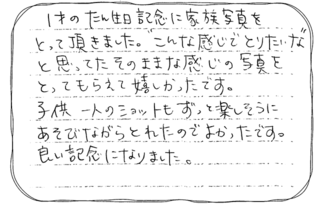 1才のたん生日記念に家族写真を
とって頂きました。"こんな感じでとりたいな"
と思ってたそのままな感じの写真を
とってもらえて嬉しかったです。
子供一人のショットもずっと楽しそうに
あそびながらとれたのでよかったです。
良い記念になりました。